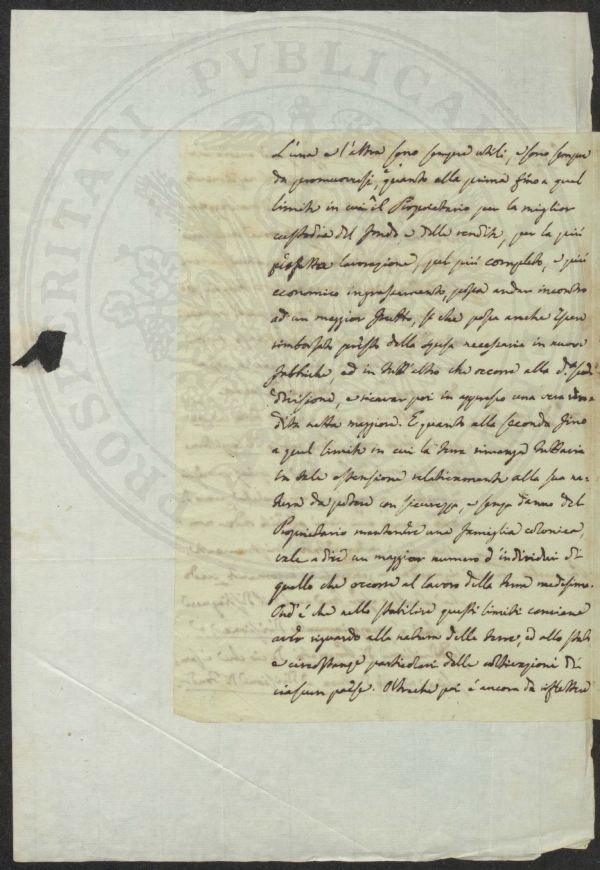 L'una e l'altra sono sempre utili, e sono sempre
da promuoversi, quanto alla prima fino a quel
limite in cui il Proprietario per la miglior
custodia del fondo e delle rendite, per la più
perfetta lavorazione, pel più completo, e più
economico ingrassamento, possa andar incontro
ad un maggior frutto, sì che possa anche essere
rimborsato presto della spesa necessaria in nuove
fabbriche, ed in tutt'altro che occorre alla
divisione, e ricavar poi in appresso una vera
dita netta maggiore. E quanto alla seconda fino
a quel limite in cui la terra rimanga tuttavia
in tale estensione relativamente alla sua na-
tura da potere con sicurezza, e senza danno del
Proprietario mantenere una famiglia colonica,
vale a dire un maggior numero d'individui di
quello che occorre al lavoro della terra medesima.
Ond'è che nello stabilire questi limiti conviene
aver riguardo alla natura delle terre, ed allo stato
e circostanze particolari delle coltivazioni di
ciascun paese. Oltreché poi è ancora da riflettere
PROSPERITATI PVBLICAE